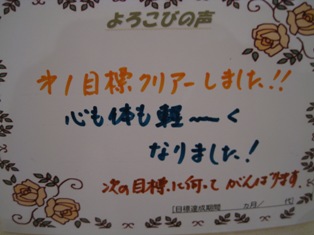 よろこびの声
オ1目標クリアーしました!!
心も体も軽〜く
なりました!
次の目標に向って がんばります。
[目標達成期間 ヵ月/ 代]